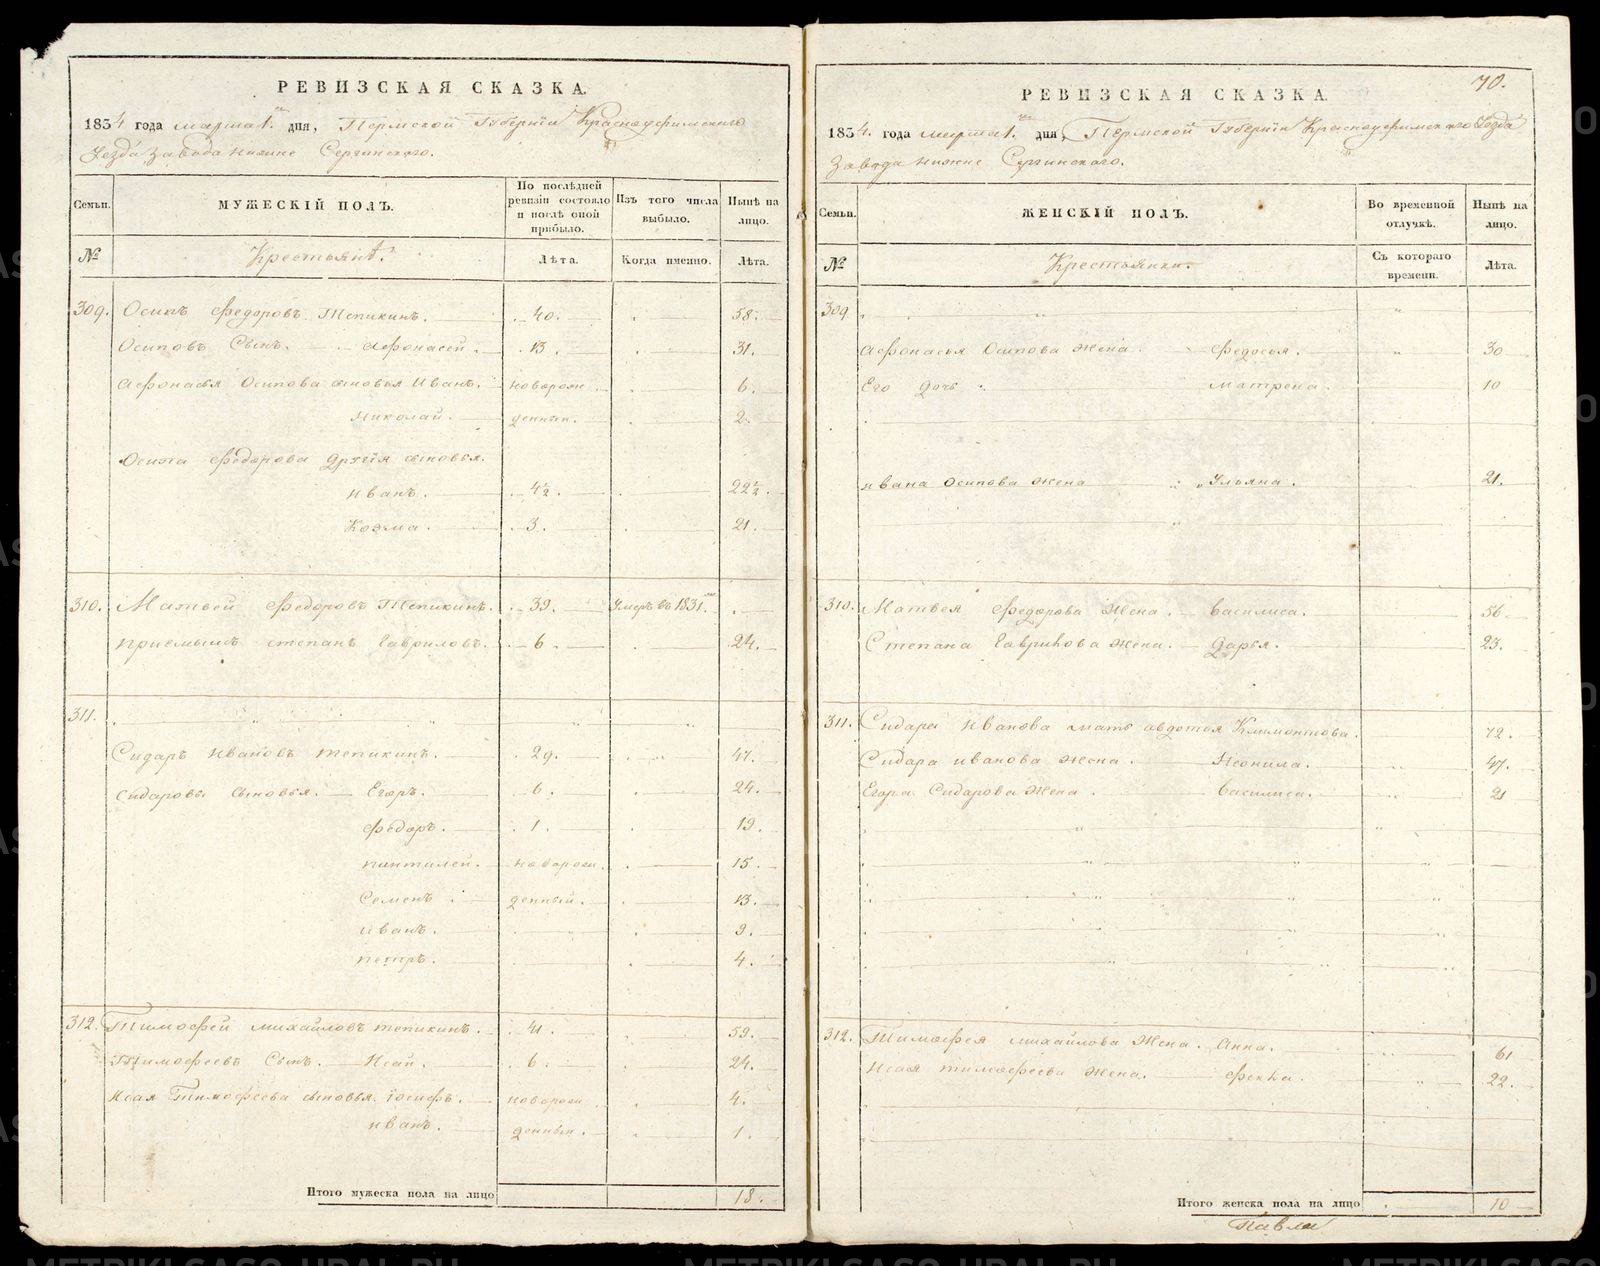 РЕВИЗСКАЯ СКАЗКА.
1834 года марта 1го дня, Пермской Губернїи Красноуфимского
Уезда завода нижне Сергинского.
Семьи.
МУЖЕСКІЙ ПОЛЪ.
По послѣдней ревизіи состояло и послѣ оной прибыло.
Изъ того числа выбыло.
Нынѣ на лицо.
№
Крестьянѣ.
Лѣта.
Когда именно.
Лѣта.
309. Осипъ Федоровъ Тепикинъ. 40. 58.
Осиповъ Сынъ. Афонасей. 13. 31.
Афонасья Осипова сыновья Иванъ. новорож 6.
Николай. денныи. 2.
Осипа Федорова другїя сыновья.
Иванъ. 4½. 22½.
Козма. 3. 21.
310. Матвей Федоровъ Тепикинъ. 39. Умеръ въ 1831.
приемышъ степанъ Гавриловъ. 6. 24.
311.
Сидаръ Ивановъ тепикинъ. 29. 47.
Сидаровы сыновья. Егоръ. 6. 24.
Федоръ. 1. 19.
пантилей. новорож. 15.
Семенъ. денный. 13.
иванъ. 9.
петръ. 4.
312. Тимофей михайловъ тепикинъ. 41. 59.
Тимофеевъ Сынъ. Исай. 6. 24.
Исая Тимофеева сыновья. їосифъ. новорож. 4.
иванъ. денныи. 1.
Итого мужеска пола на лицо 18.
70.
РЕВИЗСКАЯ СКАЗКА.
1834. года марта 1. го дня, Пермской Губернїи Красноуфимского Уезда
Завода нижне Сергинского.
Семьи.
ЖЕНСКІЙ ПОЛЪ.
Во временной отлучкѣ.
Нынѣ на лицо.
№
Крестьянки.
Съ котораго времени.
Лѣта.
309
Афонасья Осипова жена. Федосья. 30
Его дочь матрена. 10
ивана осипова жена Ульяна. 21.
310. Матвея Федорова жена. Василиса. 56.
Степана Гаврилова жена. Дарья. 23.
311. Сидара Иванова мать авдотья Климонтова. 72.
Сидара иванова жена. Неонила. 47.
Егора Сидарова жена. василиса. 21
312. Тимофея михайлова жена. Анна. 61
Исая тимофеева жена. фекла. 22.
Итого женска пола на лицо 10
Павла
METRIKI.GASO-URAL.RU